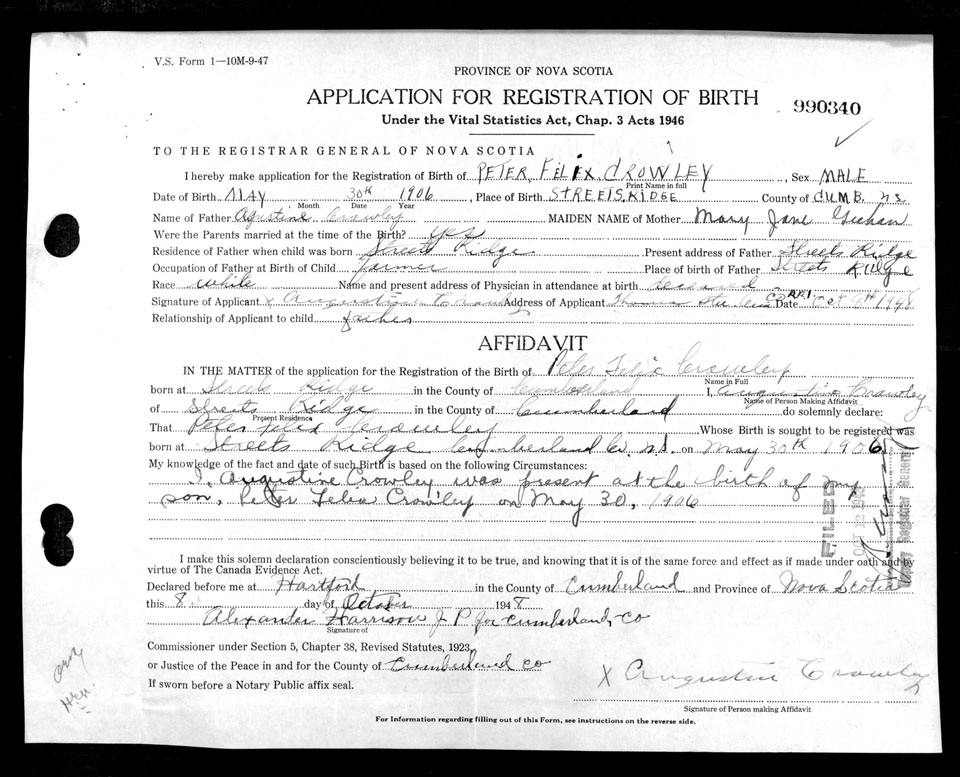 V.S. Form 1—10M-9-47
PROVINCE OF NOVA SCOTIA
APPLICATION FOR REGISTRATION OF BIRTH
990340
Under the Vital Statistics Act, Chap. 3 Acts 1946
TO THE REGISTRAR GENERAL OF NOVA SCOTIA
I hereby make application for the Registration of Birth of PETER FELIX CROWLEY, Sex MALE
Print Name in full
Date of Birth MAY 30th 1906, Place of Birth STREETS RIDGE County of CUMB. N.S.
Month Date Year
Name of Father Agustine Crowley MAIDEN NAME of Mother Mary Jane
Were the Parents married at the time of the Birth? Yes
Residence of Father when child was born Streets Ridge Present address of Father Streets Ridge
Occupation of Father at Birth of Child farmer Place of birth of Father Streets Ridge
Race white Name and present address of Physician in attendance at birth deceased
Signature of Applicant x Augustine Crowley Address of Applicant RR1 Date Oct 1948
Relationship of Applicant to child father
AFFIDAVIT
IN THE MATTER of the application for the Registration of the Birth of Peter Felix Crowley
Name in Full
born at Streets Ridge in the County of Cumberland I, Augustine Crowley
Name of Person Making Affidavit
of Streets Ridge in the County of Cumberland do solemnly declare:
Present Residence
That Peter Felix Crowley Whose Birth is sought to be registered was
born at Streets Ridge Cumberland Co N.S. on May 30th 1906
My knowledge of the fact and date of such Birth is based on the following Circumstances:
I, Augustine Crowley was present at the birth of my
son, Peter Felix Crowley on May 30, 1906
FILED
OCT 12 1948
Registrar General
I make this solemn declaration conscientiously believing it to be true, and knowing that it is of the same force and effect as if made under oath and by
virtue of The Canada Evidence Act.
Declared before me at Hartford in the County of Cumberland and Province of Nova Scotia
this 8 day of October 1948
Alexander Harrison J P for Cumberland, Co
Signature of
Commissioner under Section 5, Chapter 38, Revised Statutes, 1923,
or Justice of the Peace in and for the County of Cumberland Co
If sworn before a Notary Public affix seal.
X Augustin Crowley
Signature of Person making Affidavit
For Information regarding filling out of this Form, see instructions on the reverse side.